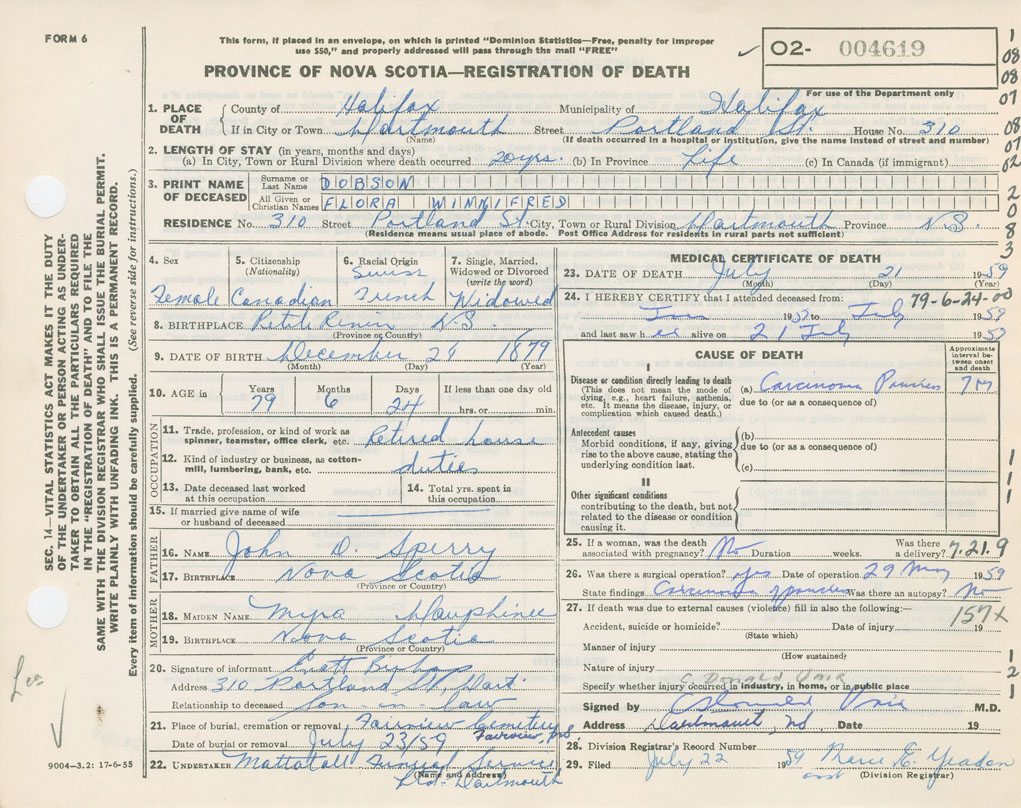 FORM 6
This form, if placed in an envelope, on which is printed "Dominion Statistics—Free, penalty for improper
use $50," and properly addressed will pass through the mail "FREE"
PROVINCE OF NOVA SCOTIA—REGISTRATION OF DEATH
02- 004619
For use of the Department only
1. PLACE OF DEATH County of Halifax Municipality of Halifax
If in City or Town Dartmouth Street Portland St. House No. 310
(Name) (If death occurred in a hospital or institution, give the name instead of street and number)
2. LENGTH OF STAY (in years, months and days)
(a) In City, Town or Rural Division where death occurred 20 yrs. (b) In Province Life (c) In Canada (if immigrant)
3. PRINT NAME OF DECEASED Surname or Last Name DOBSON
All Given or Christian Names FLORA WINNIFRED
RESIDENCE No. 310 Street Portland St. City, Town or Rural Division Dartmouth Province N.S.
(Residence means usual place of abode. Post Office Address for residents in rural parts not sufficient)
4. Sex Female
5. Citizenship (Nationality) Canadian
6. Racial Origin Swiss French
7. Single, Married, Widowed or Divorced (write the word) Widowed
8. BIRTHPLACE N.S.
(Province or Country)
9. DATE OF BIRTH December 27 1879
(Month) (Day) (Year)
10. AGE in Years 79 Months 6 Days 24 If less than one day old hrs. or min.
OCCUPATION
11. Trade, profession, or kind of work as spinner, teamster, office clerk, etc. Retired house
12. Kind of industry or business, as cotton-mill, lumbering, bank, etc. duties
13. Date deceased last worked at this occupation
14. Total yrs. spent in this occupation
15. If married give name of wife or husband of deceased
FATHER
16. NAME John D. Sperry
17. BIRTHPLACE Nova Scotia
(Province or Country)
MOTHER
18. MAIDEN NAME Myra Dauphinee
19. BIRTHPLACE Nova Scotia
(Province or Country)
20. Signature of informant Bishop
Address 310 Portland St, Dart
Relationship to deceased Son-in-law
21. Place of burial, cremation or removal Fairview Cemetery
Fairview,
Date of burial or removal July 23/59
22. UNDERTAKER Mattatall Funeral Service
(Name and address) Ltd. Dartmouth
MEDICAL CERTIFICATE OF DEATH
23. DATE OF DEATH July 21 1959
(Month) (Day) (Year)
24. I HEREBY CERTIFY that I attended deceased from: 79-6-24-00
to July 1959
and last saw her alive on 21 July 1959
CAUSE OF DEATH
Approximate interval between onset and death
I
Disease or condition directly leading to death (a) Carcinoma Pancreas 7 M
(This does not mean the mode of dying, e.g., heart failure, asthenia, etc. It means the disease, injury, or complication which caused death.) due to (or as a consequence of)
Antecedent causes (b)
Morbid conditions, if any, giving rise to the above cause, stating the underlying condition last. due to (or as a consequence of)
(c)
II
Other significant conditions
contributing to the death, but not related to the disease or condition causing it.
25. If a woman, was the death associated with pregnancy? No Duration weeks. Was there a delivery? 7.21.9
26. Was there a surgical operation? yes Date of operation 29 May 1959
State findings Carcinoma of pancreas Was there an autopsy? No
27. If death was due to external causes (violence) fill in also the following:— 157X
Accident, suicide or homicide? Date of injury 19
(State which)
Manner of injury
(How sustained)
Nature of injury
Specify whether injury occurred in industry, in home, or in public place
Signed by M.D.
Address Dartmouth, Date 19
28. Division Registrar's Record Number
29. Filed July 22 1959 Marie E. Yeadon
(Division Registrar)
SEC. 14—VITAL STATISTICS ACT MAKES IT THE DUTY
OF THE UNDERTAKER OR PERSON ACTING AS UNDER-
TAKER TO OBTAIN ALL THE PARTICULARS REQUIRED
IN THE "REGISTRATION OF DEATH" AND TO FILE THE
SAME WITH THE DIVISION REGISTRAR WHO SHALL ISSUE THE BURIAL PERMIT.
WRITE PLAINLY WITH UNFADING INK. THIS IS A PERMANENT RECORD.
Every item of information should be carefully supplied. (See reverse side for instructions.)
9004-3.2: 17-6-55
1
08
08
07
08
07
02
2
0
8
8
3
1
1
1
1
2
1